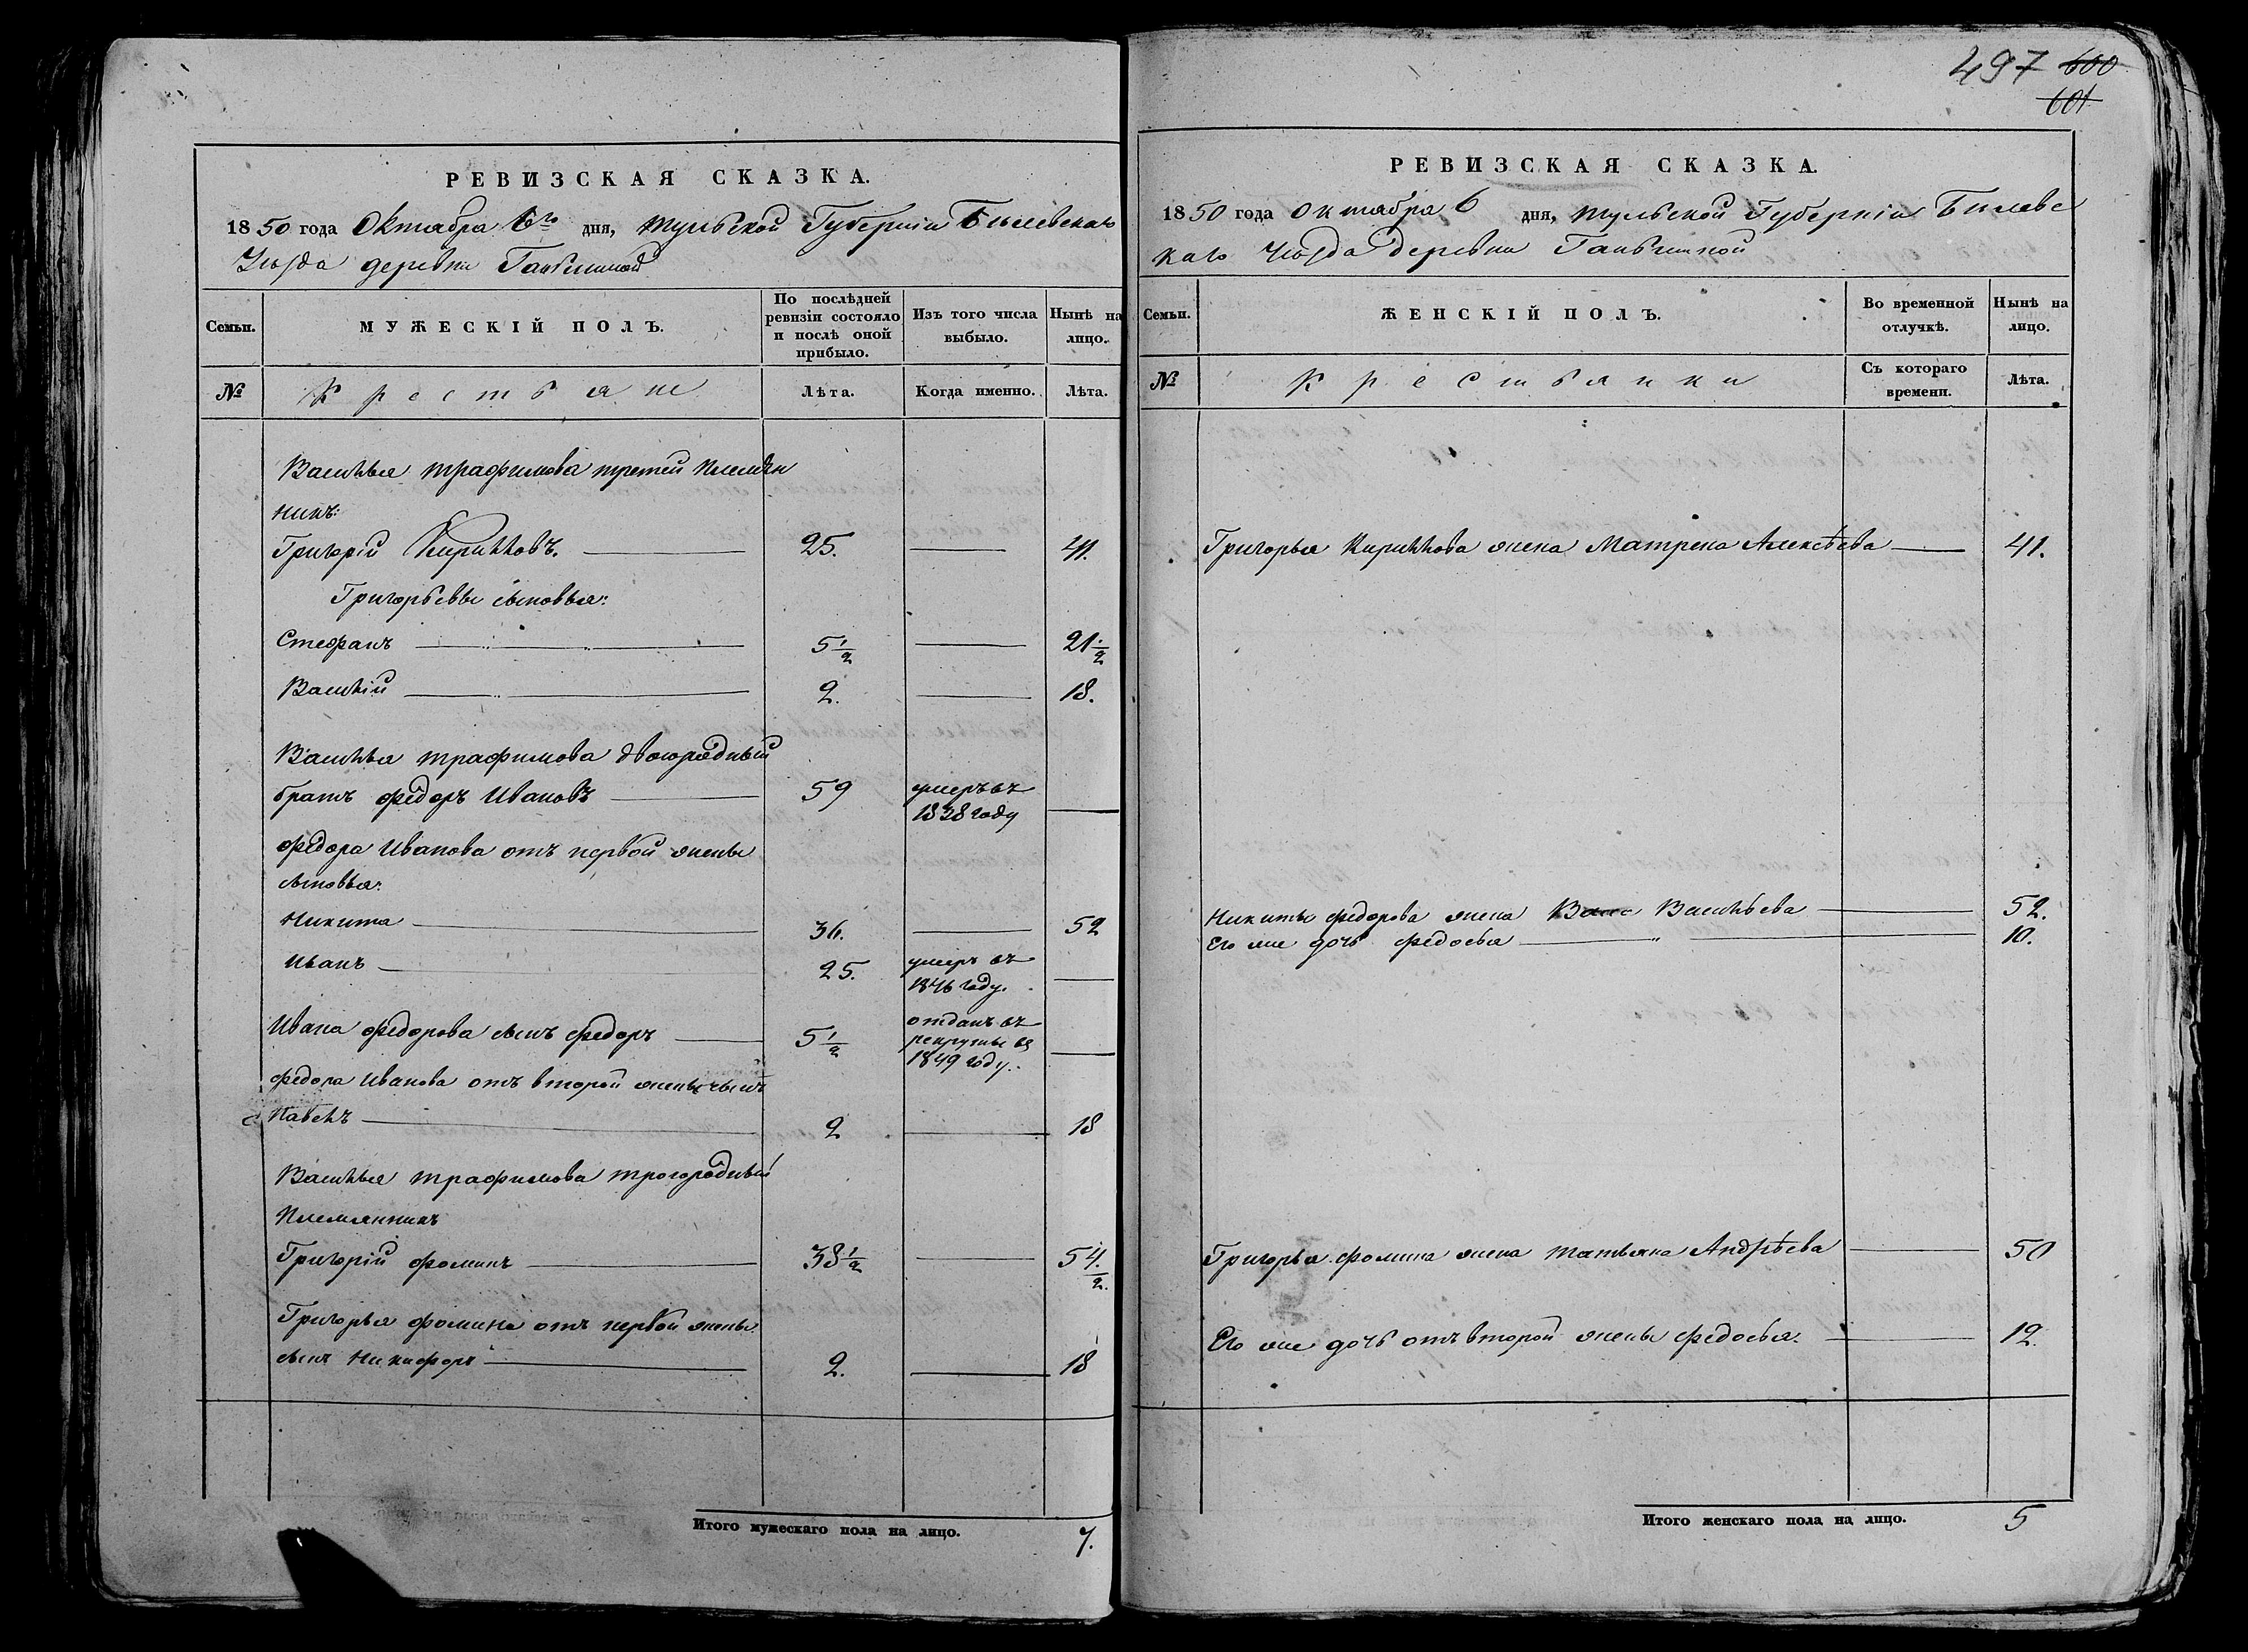 РЕВИЗСКАЯ СКАЗКА.
1850 года Октября 6го дня, Тульской Губерніи Бѣлевскаго
Уѣзда деревни
Семьи.
МУЖЕСКІЙ ПОЛЪ.
По послѣдней ревизіи состояло и послѣ оной прибыло.
Изъ того числа выбыло.
Нынѣ на лицо.
№
Крестьяне
Лѣта.
Когда именно.
Лѣта.
Василья Трафимова третей племян
никъ:
Григорій Кирилловъ. 25. 41.
Григорьевы сыновья:
Стефанъ 5 1/2 21 1/2
Василій 2. 18.
Василья Трафимова двоюродный
братъ Федоръ Ивановъ 59 умеръ въ
1838 году
Федора Иванова отъ первой жены
сыновья:
Никита 36. 52
Иванъ 25. умеръ въ
1846 году.
Ивана Федорова сынъ Федоръ 5 1/2 отданъ въ
рекруты въ
1849 году.
Федора Иванова отъ второй жены сынъ
Павелъ 2 18
Василья Трафимова троюродный
Племянникъ
Григорій Фоминъ 38 1/2 54 1/2.
Григорья Фомина отъ первой жены
сынъ Никифоръ 2. 18
Итого мужескаго пола на лицо. 7.
497 600
601
РЕВИЗСКАЯ СКАЗКА.
1850 года Октября 6 дня, Тульской Губерніи Билевс
каго Уѣзда Деревни
Семьи.
ЖЕНСКІЙ ПОЛЪ.
Во временной отлучкѣ.
Нынѣ на лицо.
№
Крестьянки
Съ котораго времени.
Лѣта.
Григорья Кириллова жена Матрена Алексѣева 41.
Никиты Федорова жена Васильева 52.
Его же дочь Федосья 10.
Григорья Фомина жена Татьяна Андрѣева 50
Его же дочь отъ второй жены Федосья. 12.
Итого женскаго пола на лицо. 5